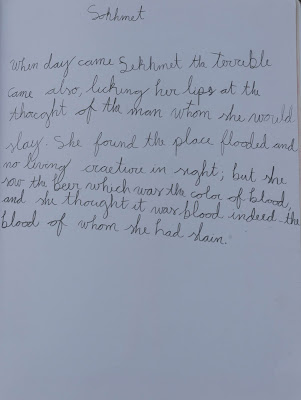 Sekhmet
When day came Sekhmet the terrible
came also, licking her lips at the
thought of the man whom she would
slay. She found the place flooded and
no living craeture in sight; but she
sow the Beer which was the color of blood,
and she thought it was blood indeed-the
blood of whom she had slain.